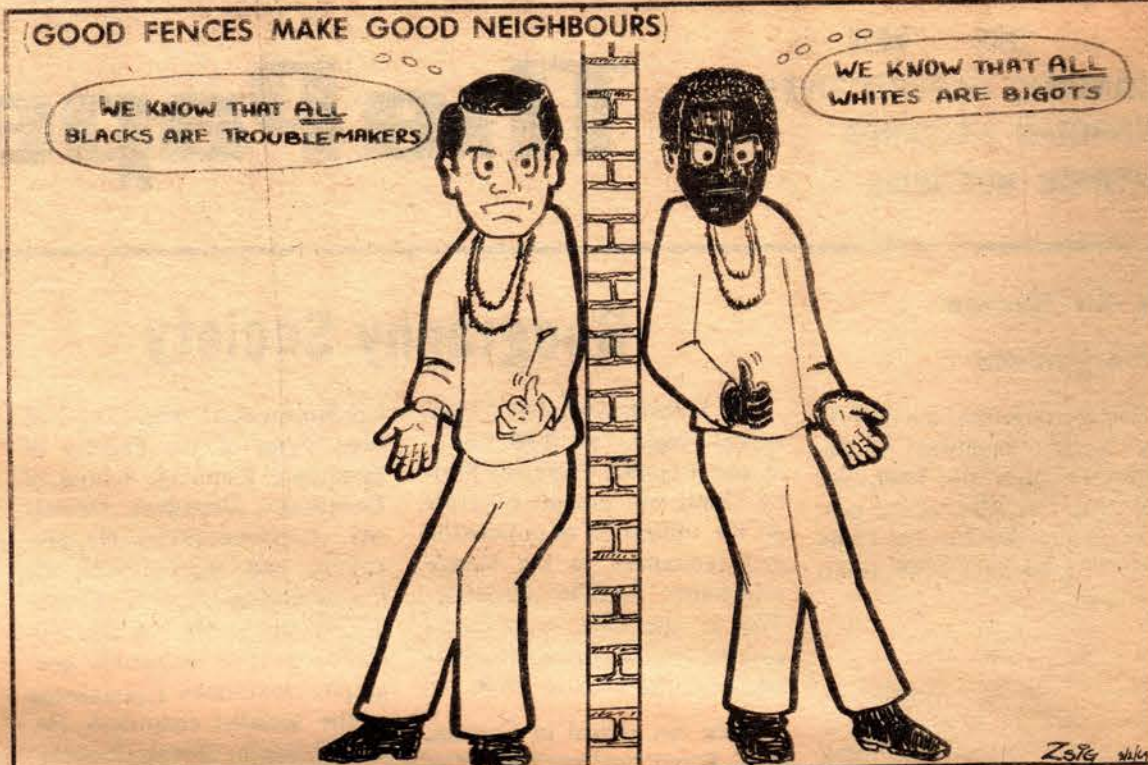 (GOOD FENCES MAKE GOOD NEIGHBOURS)
WE KNOW THAT ALL
BLACKS ARE TROUBLEMAKERS
WE KNOW THAT ALL
WHITES ARE BIGOTS
Society
Zsig